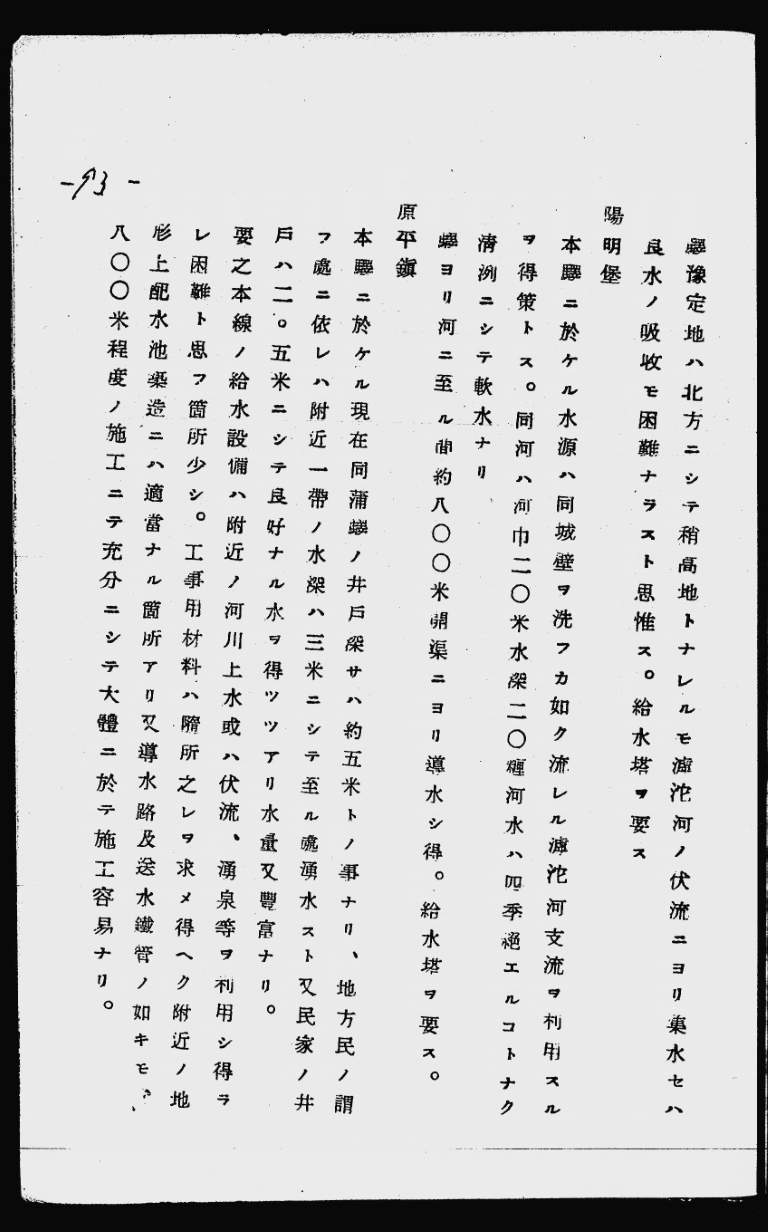 -93-
驛豫定地ハ北方ニシテ稍高地トナレルモ滹沱河ノ伏流ニヨリ集水セハ
良水ノ吸收モ困難ナラスト思惟ス。給水塔ヲ要ス
陽明堡
本驛ニ於ケル水源ハ同城壁ヲ洗フカ如ク流レル滹沱河支流ヲ利用スル
ヲ得策トス。同河ハ河巾二〇米水深二〇糎河水ハ四季絕エルコトナク
淸洌ニシテ軟水ナリ
驛ヨリ河ニ至ル間約八〇〇米開渠ニヨリ導水シ得。給水塔ヲ要ス。
原平鎭
本驛ニ於ケル現在同蒲驛ノ井戶深サハ約五米トノ事ナリ、地方民ノ謂
フ處ニ依レハ附近一帶ノ水深ハ三米ニシテ至ル處湧水スト又民家ノ井
戶ハ二。五米ニシテ良好ナル水ヲ得ツツアリ水量又豐富ナリ。
要之本線ノ給水設備ハ附近ノ河川上水或ハ伏流、湧泉等ヲ利用シ得ラ
レ困難ト思フ箇所少シ。工事用材料ハ隨所之レヲ求メ得ヘク附近ノ地
形上配水池築造ニハ適當ナル箇所アリ又導水路及送水鐵管ノ如キモ
八〇〇米程度ノ施工ニテ充分ニシテ大體ニ於テ施工容易ナリ。